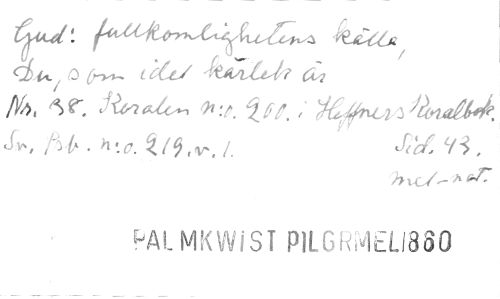 Gud: fullkomlighetens källa,
Du, som idel kärlek är
Nr. 38. Koralen n:o. 200. i Hæffners Koralbok.
Sv. Psb. n:o. 219. v. 1. Sid. 43.
mel-not.
PALMKWIST PILGRMEL1860